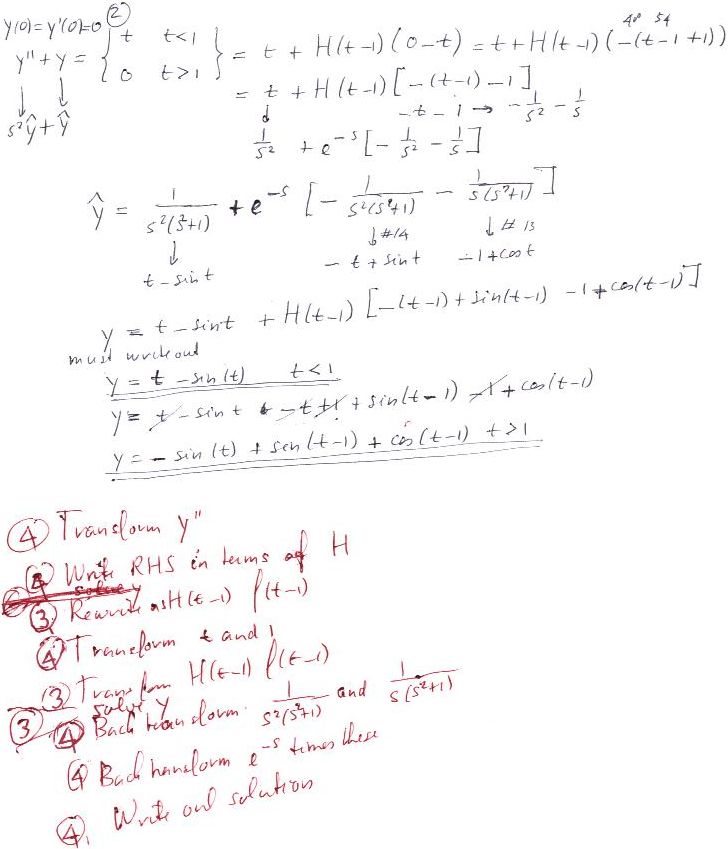 y(0)=y'(0)=0 ②
y''+y = { t t<1
0 t>1 } = t + H(t-1)(0-t) = t + H(t-1)(-(t-1+1))
= t + H(t-1)[-(t-1)-1]
-t-1 → -1/s² - 1/s
s²ŷ+ŷ
1/s² + e^-s[-1/s² - 1/s]
ŷ = 1/(s²(s²+1)) + e^-s [-1/(s²(s²+1)) - 1/(s(s²+1))]
↓ ↓#14 ↓#13
t-sint -t+sint -1+cost
y = t-sint + H(t-1)[-(t-1)+sin(t-1) -1+cos(t-1)]
must write out
y = t -sin(t) t<1
y= t-sint -t+1+sin(t-1) -1+cos(t-1)
y = -sin(t) + sin(t-1) + cos(t-1) t>1
④ Transform y"
Write RHS in terms of H
solve y
③ Rewrite as H(t-1) f(t-1)
④ Transform t and 1
③ Transform H(t-1) f(t-1)
③ solve y
④ Back transform 1/(s²(s²+1)) and 1/(s(s²+1))
④ Back transform e^-s times these
④. Write out solution